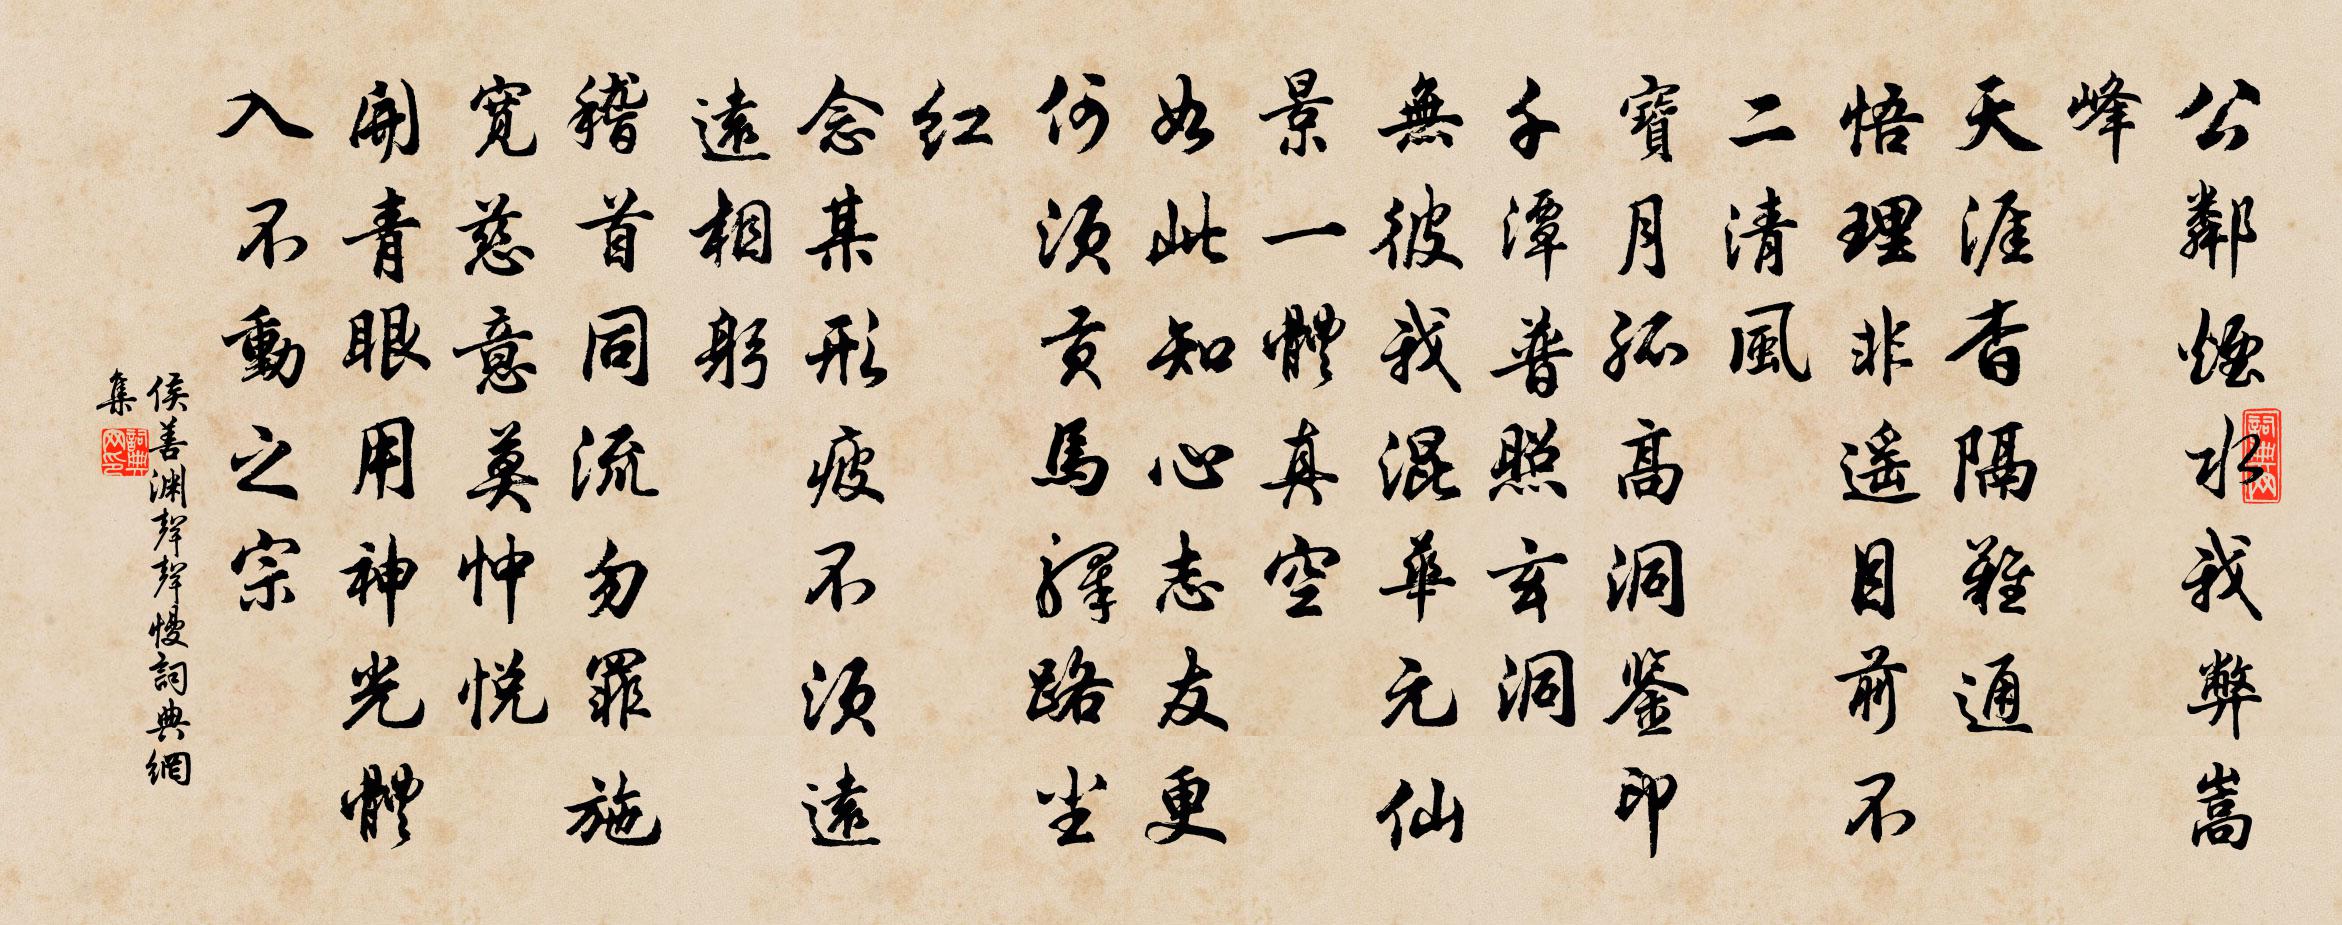 公鄰煙水我弊嵩
峰
天涯杳隔難通
悟理非遥目前不
二清風
寶月孤高洞鑒印
千潭普照玄洞
無彼我混華元仙
景一體真空
如此知心志友更
何須貢馬驛路坐
紅
念某形疲不須遠
遠相躬
稽首同流勿罪施
寬慈意莫忡悦
開青眼用神光體
入不動之宗
侯善渊聲聲慢詞典網
集
詞典网
詞典网印